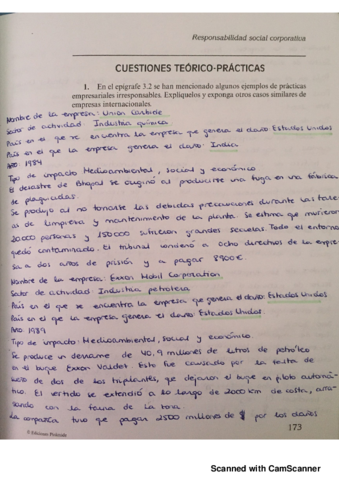 Responsabilidad social corporativa
CUESTIONES TEÓRICO-PRÁCTICAS
1. En el epígrafe 3.2 se han mencionado algunos ejemplos de prácticas
empresariales irresponsables. Explíquelos y exponga otros casos similares de
empresas internacionales.
Nombre de la empresa: Union Carbide
Sector de actividad Industria química
País en el que se encuentra la empresa que genera el daño: Estados Unidos
País en el que la empresa genera el daño: India
Año: 1984
Tipo de impacto Medioambiental, social y económico
El desastre de Bhopal se originó al producirse una fuga en una fábrica
de plaguicidas.
Se produjo al no tomarse las debidas precauciones durante las tare
as de limpieza y mantenimiento de la planta. Se estima que murieron
20000 personas y 150000 sufrieron grandes secuelas. Todo el entorno
quedó contaminado. El tribunal condenó a ocho directivos de la empre
sa a dos años de prisión y a pagar 8900€
Nombre de la empresa: Exxon Mobil Corporation
Sector de actividad Industria petrolera
País en el que se encuentra la empresa que genera el daño: Estados Unidos
País en el que la empresa genera el daño: Estados Unidos
Año: 1989
Tipo de impacto: Medioambiental, social y económico.
Se produce un derrame de 40,9 millones de litros de petróleo
en el buque Exxon Valdez. Este fue causado por la falta de
de dos de los tripulantes, que dejaron el buque en piloto automá
tico. El vertido se extendió a lo largo de 2000 km de costa, arra
sando con la fauna de la zona
La compañía tuvo que pagar 2500 millones de $ por los daños
© Ediciones Pirámide
173
Scanned with CamScanner